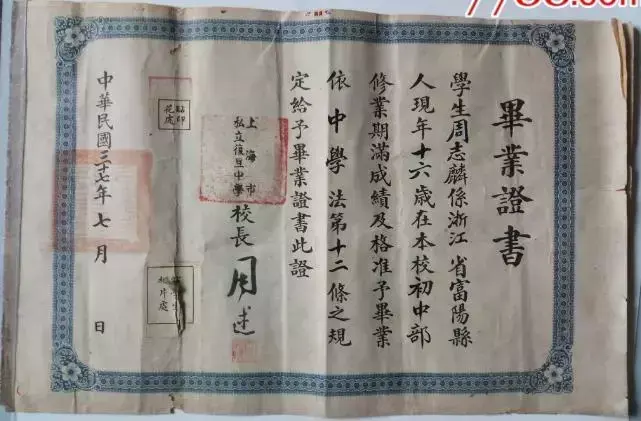 畢業證書
學生周志麟係浙江省富陽縣
人現年十六歲在本校初中部
修業期滿成績及格准予畢業
依中學法第十二條之規
定給予畢業證書此證
上海市
私立復旦中學
校長
貼印
花處
中華民國三十七年七月 日